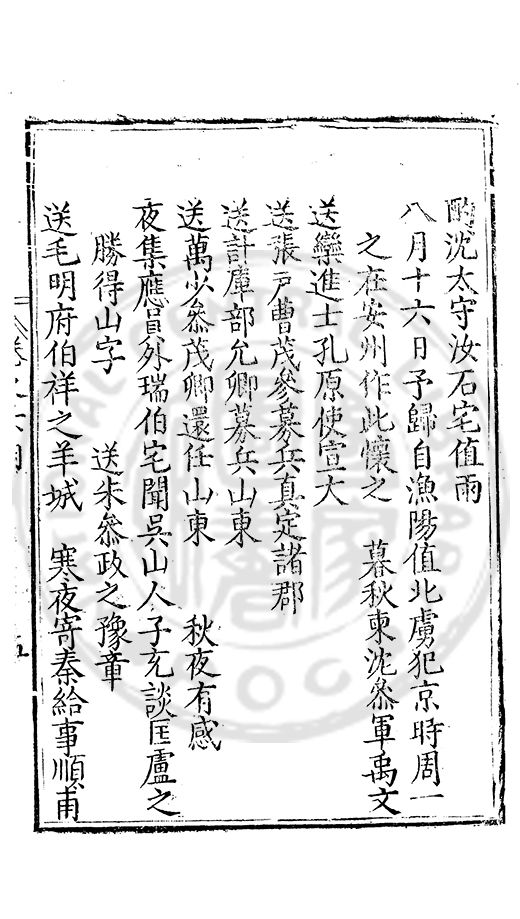 酌沈太守汝石宅值雨
八月十六日予歸自漁陽值北虜犯京時周一
之在安州作此懷之　暮秋柬沈叅軍禹文
送欒進士孔原使宣大
送張戸曹茂參募兵真定諸郡
送計庫部允卿募兵山東
送萬少叅茂卿還任山東　秋夜有感
夜集應員外瑞伯宅聞吳山人子充談匡盧之
勝得山字　送朱叅政之豫章
送毛明府伯祥之羊城　寒夜寄秦給事順甫